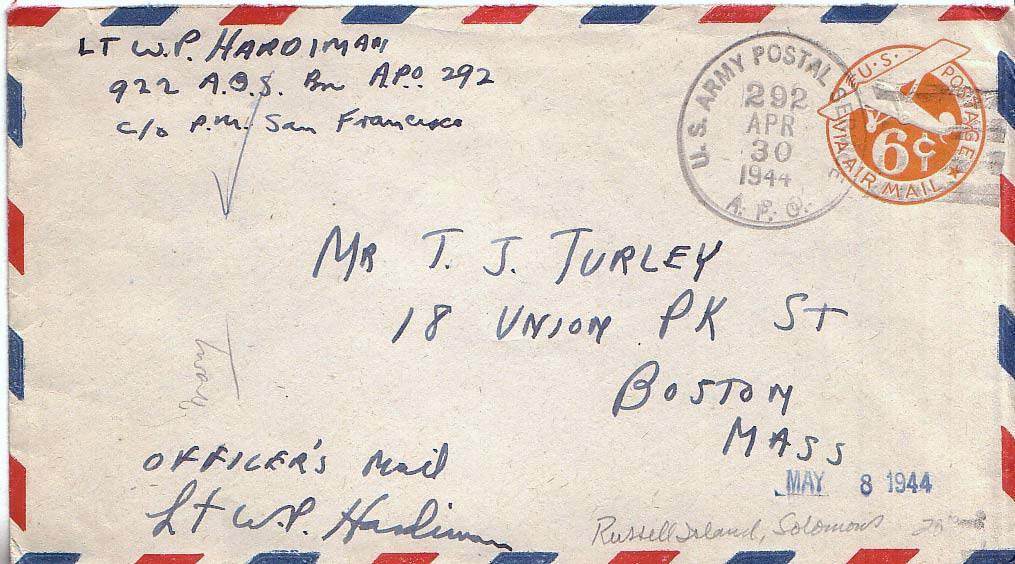 LT W.P. HARDIMAN
922 A.B.S. Bn APO 292
c/o P.M. San Francisco
U.S. ARMY POSTAL SERVICE
292
APR
30
1944
A. P. O.
U.S. POSTAGE
6¢
VIA AIR MAIL
MR T. J. TURLEY
18 UNION PK ST
BOSTON
MASS
OFFICER'S Mail
Lt W.P. Hardiman
MAY 8 1944
Russell Island, Solomons